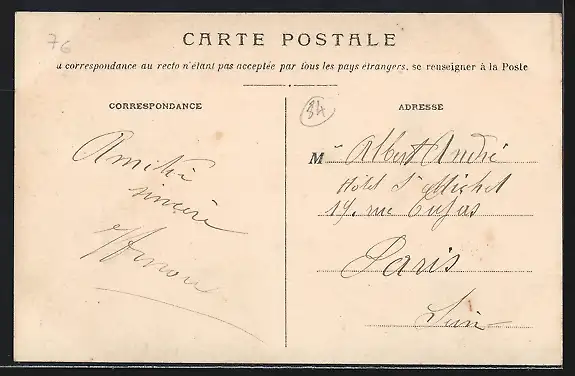 76
CARTE POSTALE
a correspondance au recto n'étant pas acceptée par tous les pays étrangers, se renseigner à la Poste
CORRESPONDANCE
34
ADRESSE
Amitié
sincère
M Albert André
Hôtel St Michel
19, rue Cujas
Paris
Seine